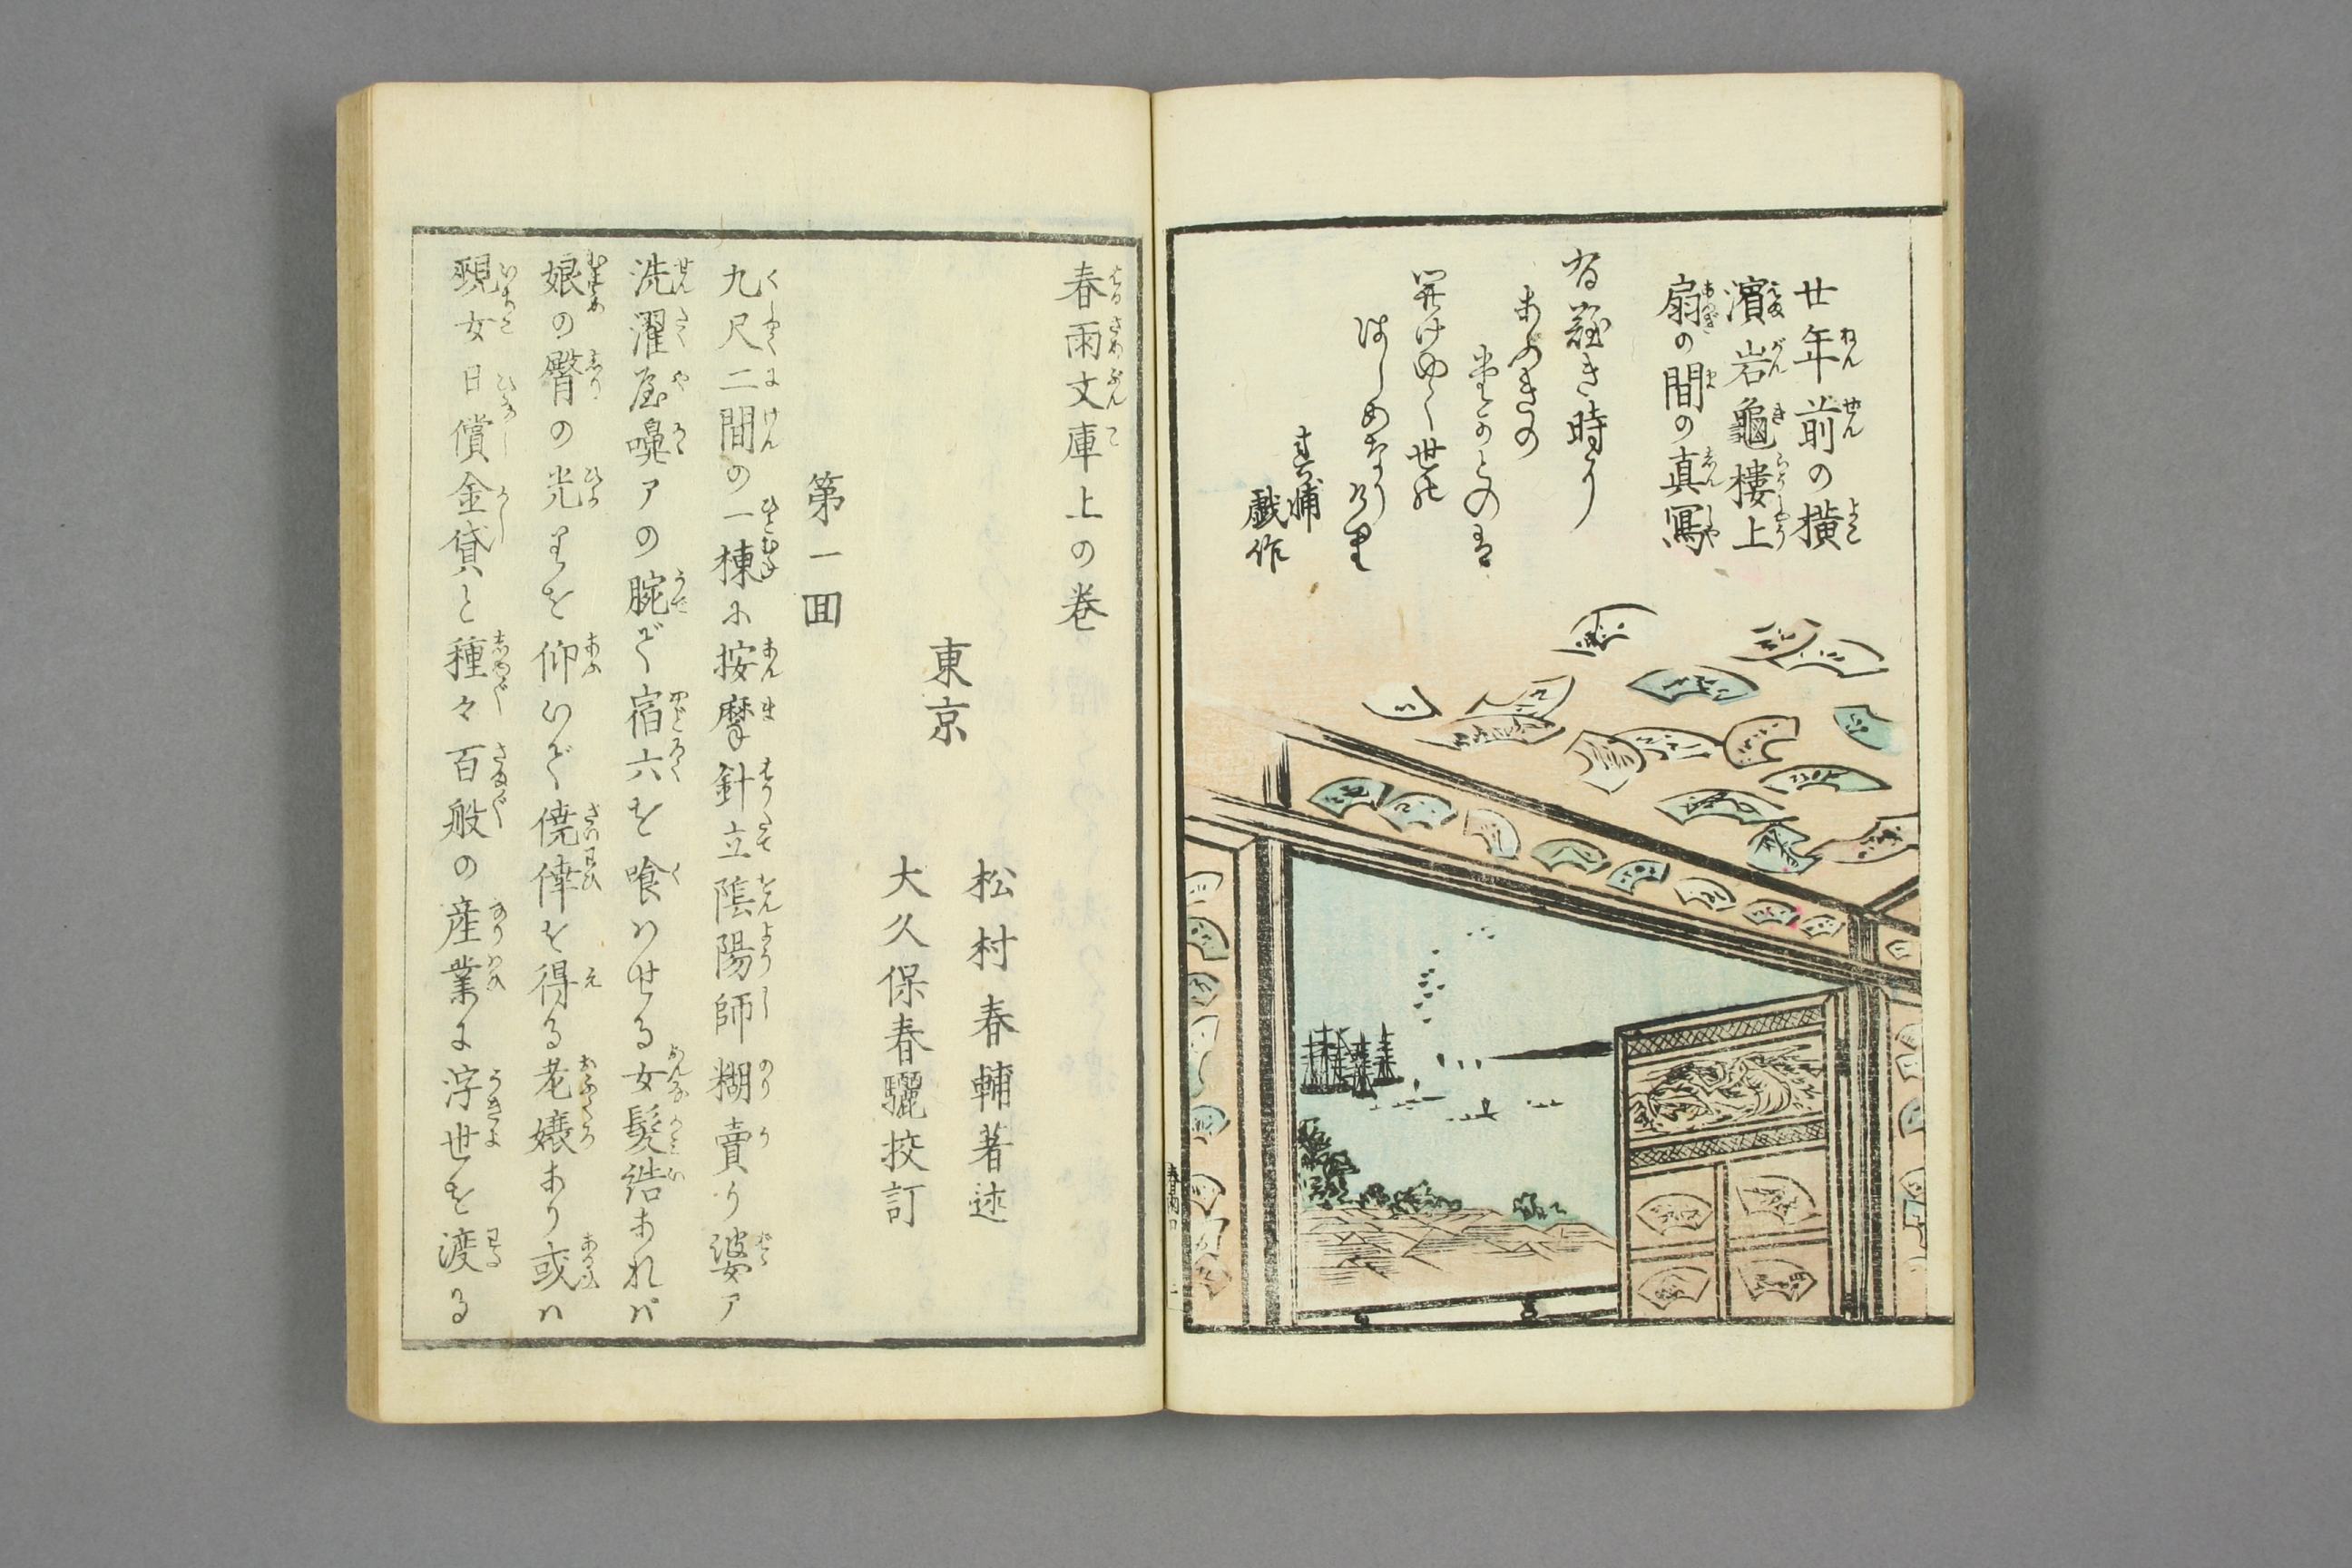 廿年前の横
濱岩亀樓上
扇の間の真冩
有難き時う
あふきの
開けゆく世の
はしめなりけり
春輔
戯作
春雨文庫上の巻
東京
松村春輔著述
大久保春驪挍訂
第一囬
九尺二間の一棟に按摩針立陰陽師糊賣り婆ア
洗濯屋嚊アの腕で宿六を喰ハせる女髪結あれバ
娘の臀の光りを仰いで僥倖を得る老婊あり或ハ
覡女日償金貸と種々百般の産業に浮世を渡る